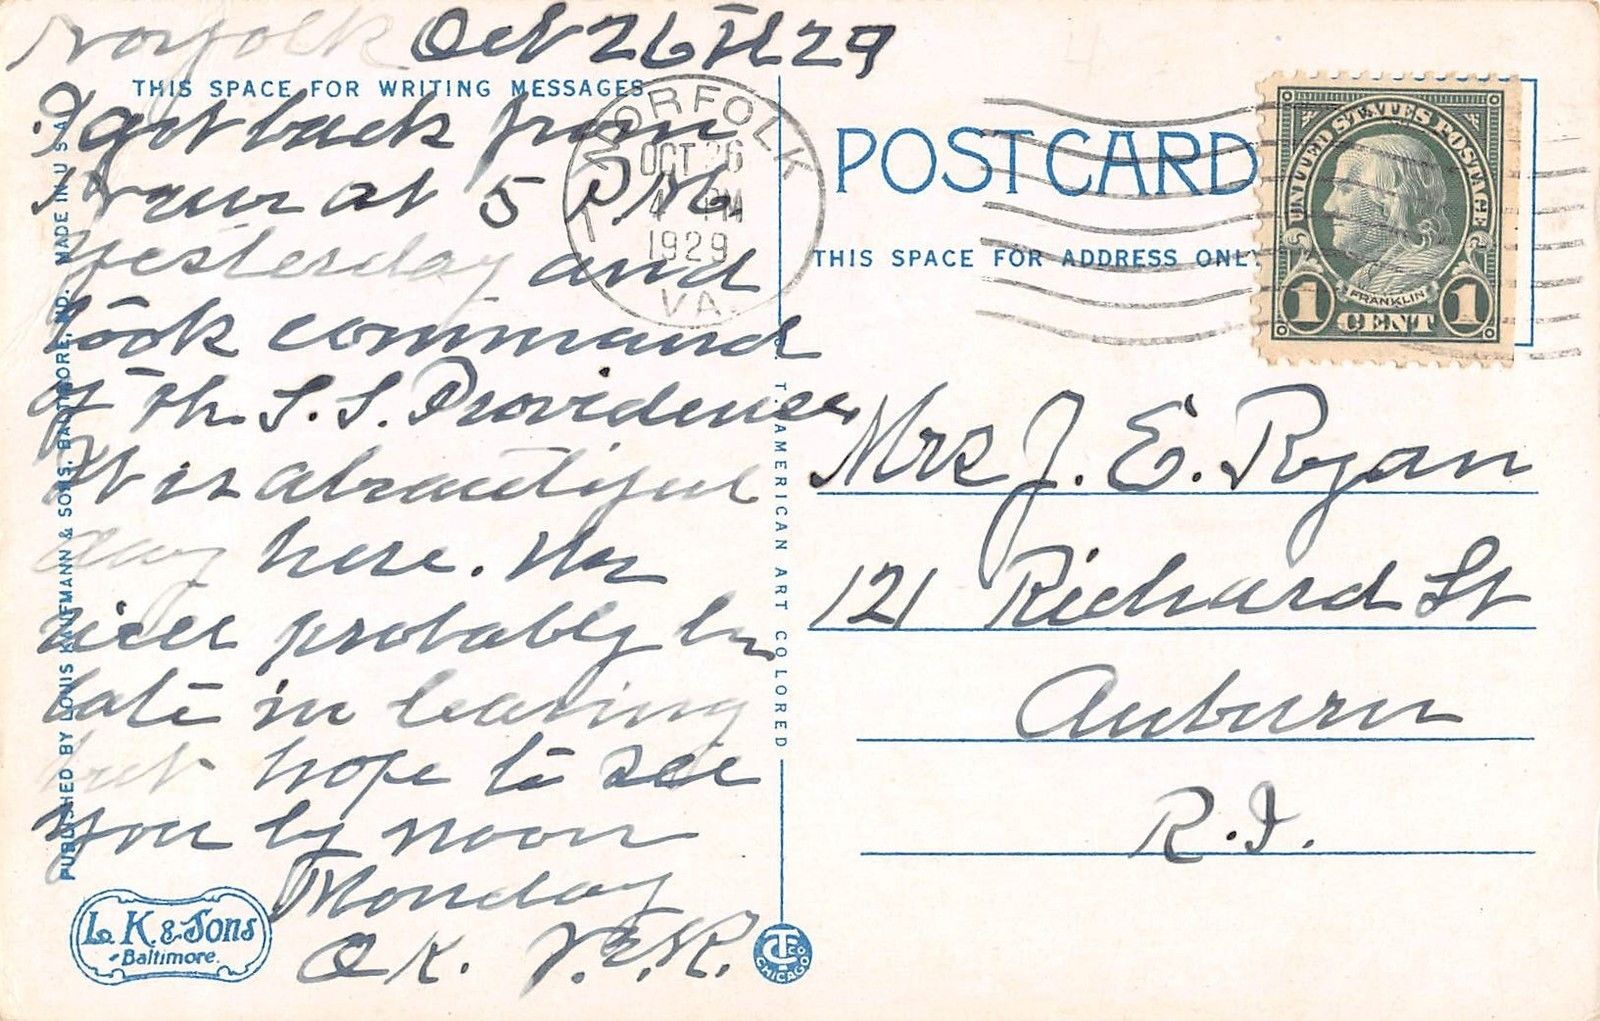 Norfolk Oct 26th 29
THIS SPACE FOR WRITING MESSAGES
I got back from
at 5 P.M.
yesterday and
took command
of the S.S. Providence
It is a beautiful
day here. We
will probably be
late in leaving
but hope to see
you by noon
Monday
O.K. J.E.R.
NORFOLK
OCT 26
4 PM
1929
VA.
POSTCARD
THIS SPACE FOR ADDRESS ONLY
UNITED STATES POSTAGE
FRANKLIN
1 CENT 1
Mrs J. E. Ryan
121 Richard St
Auburn
R.I.
PUBLISHED BY LOUIS KAUFMANN & SONS, BALTIMORE, MD. MADE IN U S A
C. T. AMERICAN ART COLORED
L. K. & Sons
Baltimore.
CT CO
CHICAGO